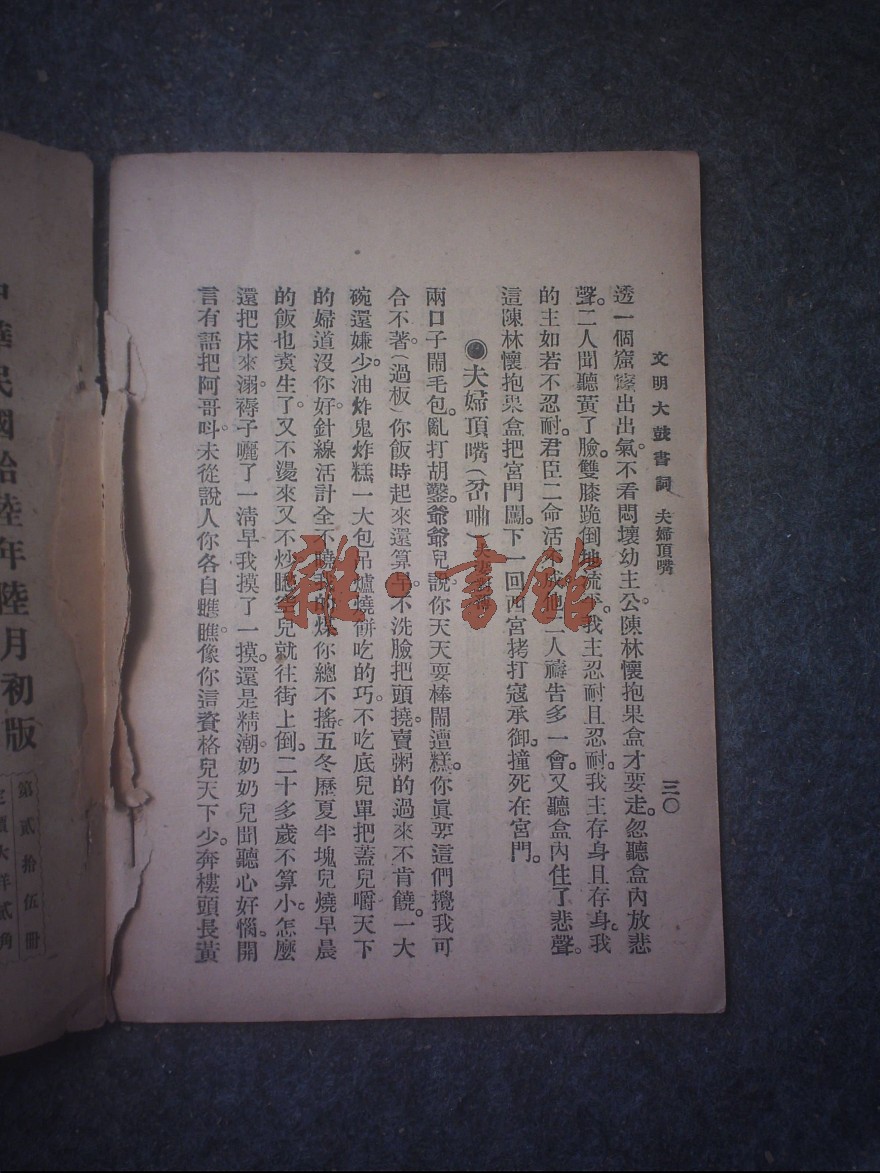 文明大鼓書詞　夫婦頂嘴　三〇
透一個窟窿出出氣。不看悶壞幼主公。陳林懷抱果盒才要走。忽聽盒內放悲
聲。二人聞聽黃了臉。雙膝跪倒地流平。我主忍耐且忍耐。我主存身且存身。我
的主如若不忍耐。君臣二命活不成。他二人禱告多一會。又聽盒內住了悲聲。
這陳林懷抱果盒把宮門闖。下一回西宮拷打寇承御。撞死在宮門。
●夫婦頂嘴(岔曲)
兩口子鬧毛包。亂打胡鑿。爺爺兒說你天天耍棒鬧遭糕。你真要這們攪我可
合不著。(過板)你飯時起來還算早。不洗臉把頭撓。賣粥的過來不肯饒。一大
碗還嫌少。油炸鬼炸糕一大包。吊爐燒餅吃的巧。不吃底兒單把蓋兒嚼。天下
的婦道沒你好。針線活計全不曉。我的煤你總不搖。五冬歷夏半塊兒燒。早晨
的飯也㷟生了。又不燙來又不炒。眼空兒就往街上倒。二十多歲不算小。怎麼
還把床來溺。褥子曬了一清早。我摸了一摸。還是精潮。奶奶兒聞聽心好惱。開
言有語把阿哥叫。未從說人你各自瞧瞧。像你這資格兒天下少。奔樓頭長黃
中華民國拾陸年陸月初版
第貳拾伍冊
定價大洋貳角
雜·書館